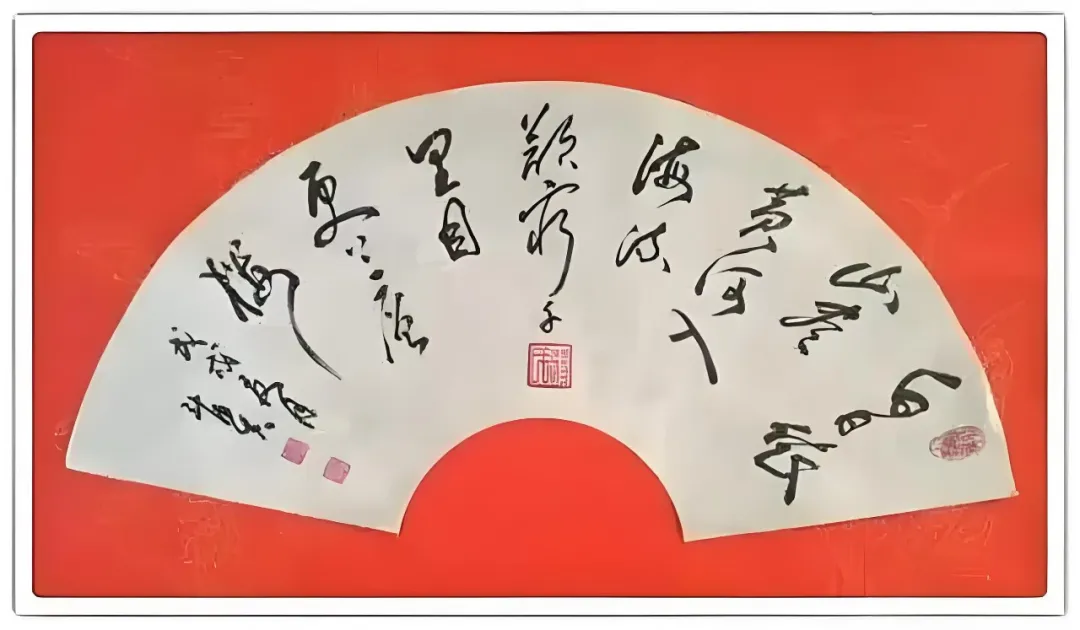 白日依
山尽
黄河入
海流
欲窮千
里目
更上一層
樓